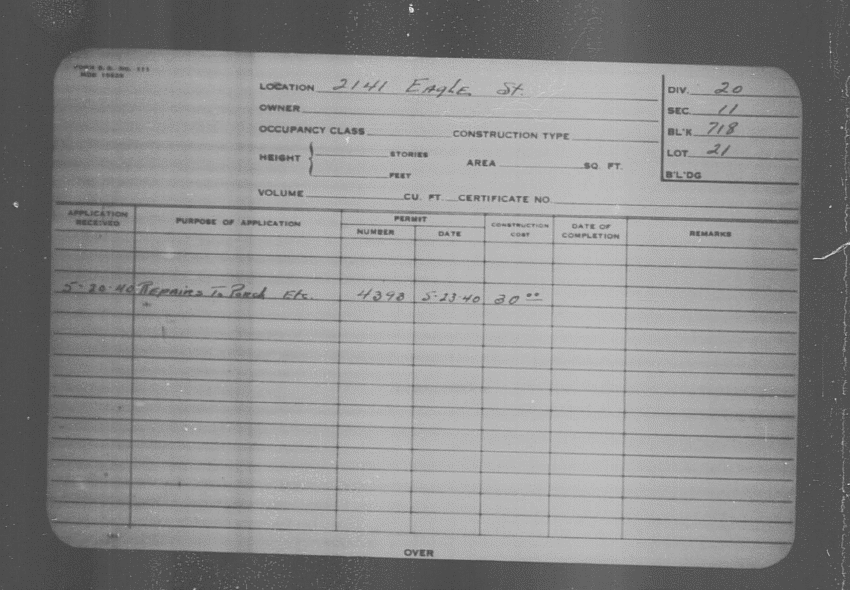 LOCATION 2141 Eagle St.
OWNER
OCCUPANCY CLASS CONSTRUCTION TYPE
HEIGHT { STORIES AREA SQ. FT.
FEET
VOLUME CU. FT. CERTIFICATE NO.
DIV. 20
SEC. 11
BL'K 718
LOT 21
B'L'DG
APPLICATION RECEIVED PURPOSE OF APPLICATION PERMIT NUMBER DATE CONSTRUCTION COST DATE OF COMPLETION REMARKS
5-20-40 Repairs To Porch Etc. 4393 5-23-40 30 00
OVER